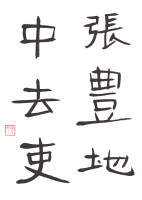 張豊地
中去吏